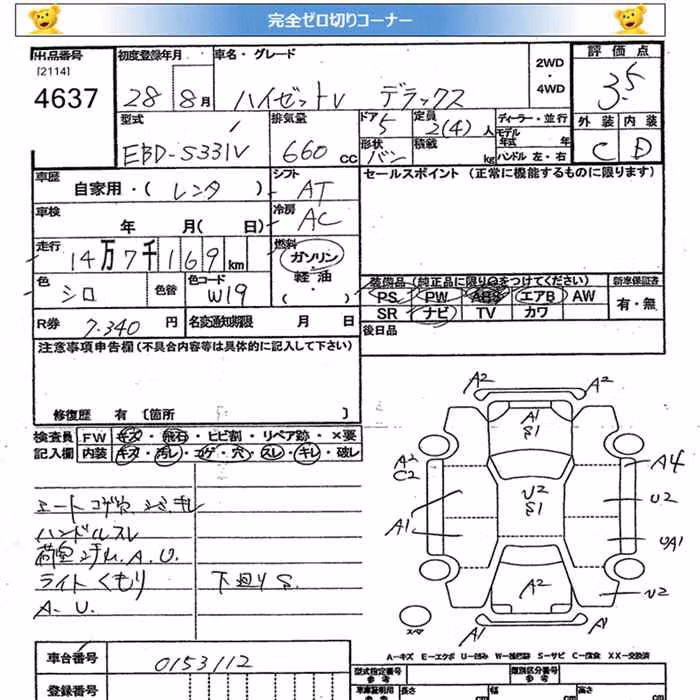 完全ゼロ切りコーナー
出品番号 初度登録年月 車名・グレード 2WD ・ 4WD 評価点
[2114]
4637 28 8月 ハイゼットV デラックス 3.5
型式 排気量 ドア 5 定員 2(4) 人 ディーラー・並行 外装 内装
EBD-S331V 660 cc 形状 バン 積載 kg モデル年式 年 ハンドル 左・右 C D
車歴 自家用・( レンタ ) シフト AT セールスポイント (正常に機能するものに限ります)
車検 年 月( 日) 冷房 AC
走行 14万7千169 km 燃料 ガソリン 軽油 ・( )
色 シロ 色替 色コード W19 装備品 (純正品に限り○をつけてください) 新車保証書
PS PW ABS エアB AW 有・無
R券 7.340 円 名変通知期限 月 日 SR ナビ TV カワ
後日品
注意事項申告欄 (不具合内容等は具体的に記入して下さい)
修復歴 有 [箇所 ]
検査員 FW キズ・飛石・ヒビ割・リペア跡・×要
記入欄 内装 キズ・汚レ・コゲ・穴・スレ・キレ・破レ
シートコゲ穴 シミ キレ
ハンドルスレ
荷室 A.U.
ライトくもり 下廻りS
A.U.
A2 A2
A1
S1
A2
C2
A4
U2
S1
U2
A1
UA1
A2
U2
スペア
A1 A1
A-キズ E-エクボ U-凹み W-補修跡 S-サビ C-腐食 XX-交換済
車台番号 0153112
型式指定番号 参考 類別区分番号 参考
登録番号 車庫証明用 参考 長さ cm 幅 cm 高さ cm